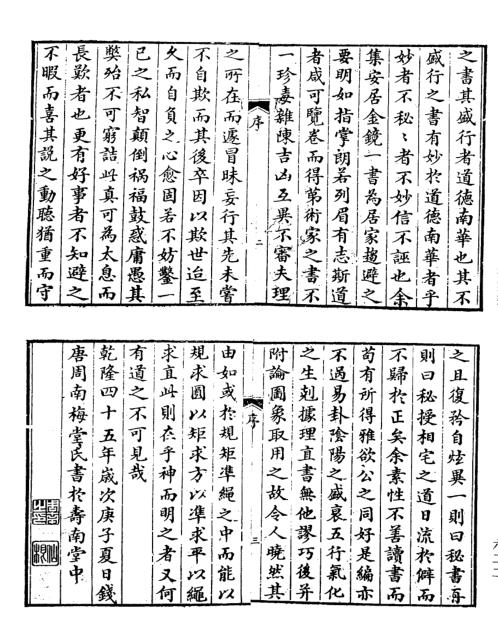 之書其盛行者道德南華也其不
盛行之書有妙於道德南華者乎
妙者不秘〻者不妙信不誣也余
集安居金鏡一書為居家趨避之
要明如指掌朗若列眉有志斯道
者咸可覽卷而得第術家之書不
一珍𡚱雜陳吉凶互異不審夫理
序
二
之所在而遽冒昧妄行其先未嘗
不自欺而其後卒因以欺世迨至
久而自負之心愈固若不妨鑿一
已之私智顛倒禍福鼓惑庸愚其
獘殆不可窮詰此真可為太息而
長歎者也更有好事者不知避之
不暇而喜其說之動聽猶重而守
之且復矜自炫異一則曰秘書再
則曰秘授相宅之道日流於僻而
不歸於正矣余素性不善讀書而
苟有所得雅欲公之同好是編亦
不過易卦陰陽之盛衰五行氣化
之生剋據理直書無他謬巧後并
附論圖象取用之故令人曉然其
序
三
由如或於規矩準繩之中而能以
規求圓以矩求方以準求平以繩
求直此則在乎神而明之者又何
有道之不可見哉
乾隆四十五年歲次庚子夏日錢
唐周南梅堂氏書於壽南堂中